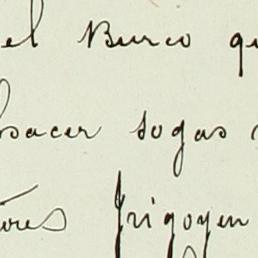 el Burco qu
sacer sogas
ores Irigoyen